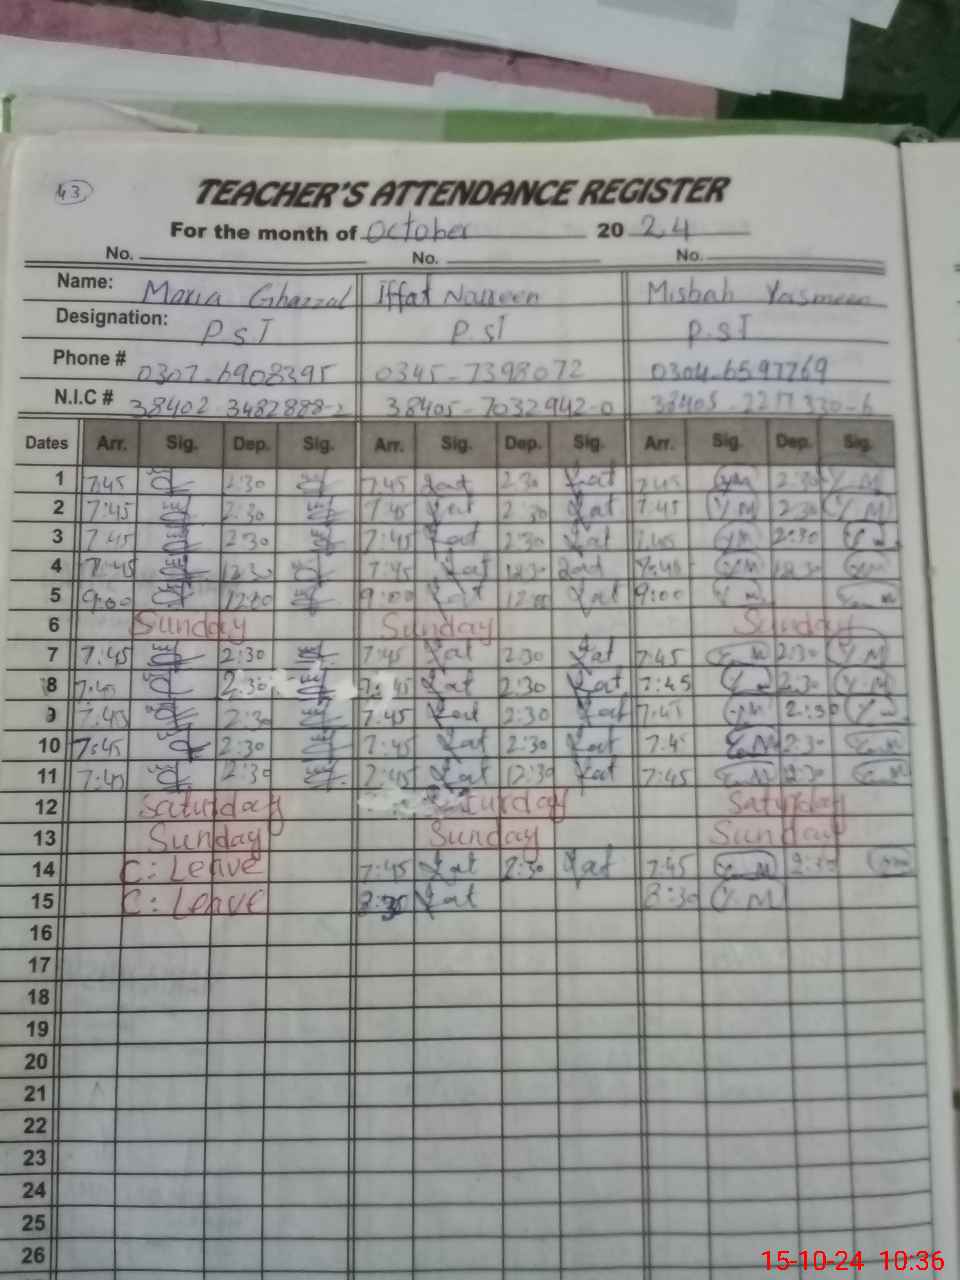 43
TEACHER'S ATTENDANCE REGISTER
For the month of October 2024
No. No. No.
Name: Maria Ghazzal Iffat Nasreen Misbah Yasmeen
Designation: P.S.T P.ST P.S.T
Phone # 0307-6908395 0345-7398072 0304-6597769
N.I.C # 38402-3482888-2 38405-7032942-0
Dates Arr. Sig. Dep. Sig. Arr. Sig. Dep. Sig. Arr. Sig. Dep. Sig.
1 7:45 2:30 7:45 2:30 7:45 2:30 Y.M
2 7:45 2:30 7:45 2:30 7:45 Y.M 2:30 Y.M
3 7:45 2:30 7:45 2:30 7:45 2:30
4 7:45 12:30 7:45 12:30 7:45 12:30
5 9:00 12:00 9:00 12:00 9:00
6 Sunday Sunday Sunday
7 7:45 2:30 7:45 2:30 7:45 2:30 Y.M
8 7:45 2:30 7:45 2:30 7:45 2:30 Y.M
9 7:45 2:30 7:45 2:30 7:45 2:30
10 7:45 2:30 7:45 2:30 7:45 2:30
11 7:45 2:30 7:45 12:30 7:45 12:30
12 Saturday Saturday Saturday
13 Sunday Sunday Sunday
14 C: Leave 7:45 2:30 7:45 2:30
15 C: Leave 8:30 8:30 Y.M
16
17
18
19
20
21
22
23
24
25
26
15-10-24 10:36